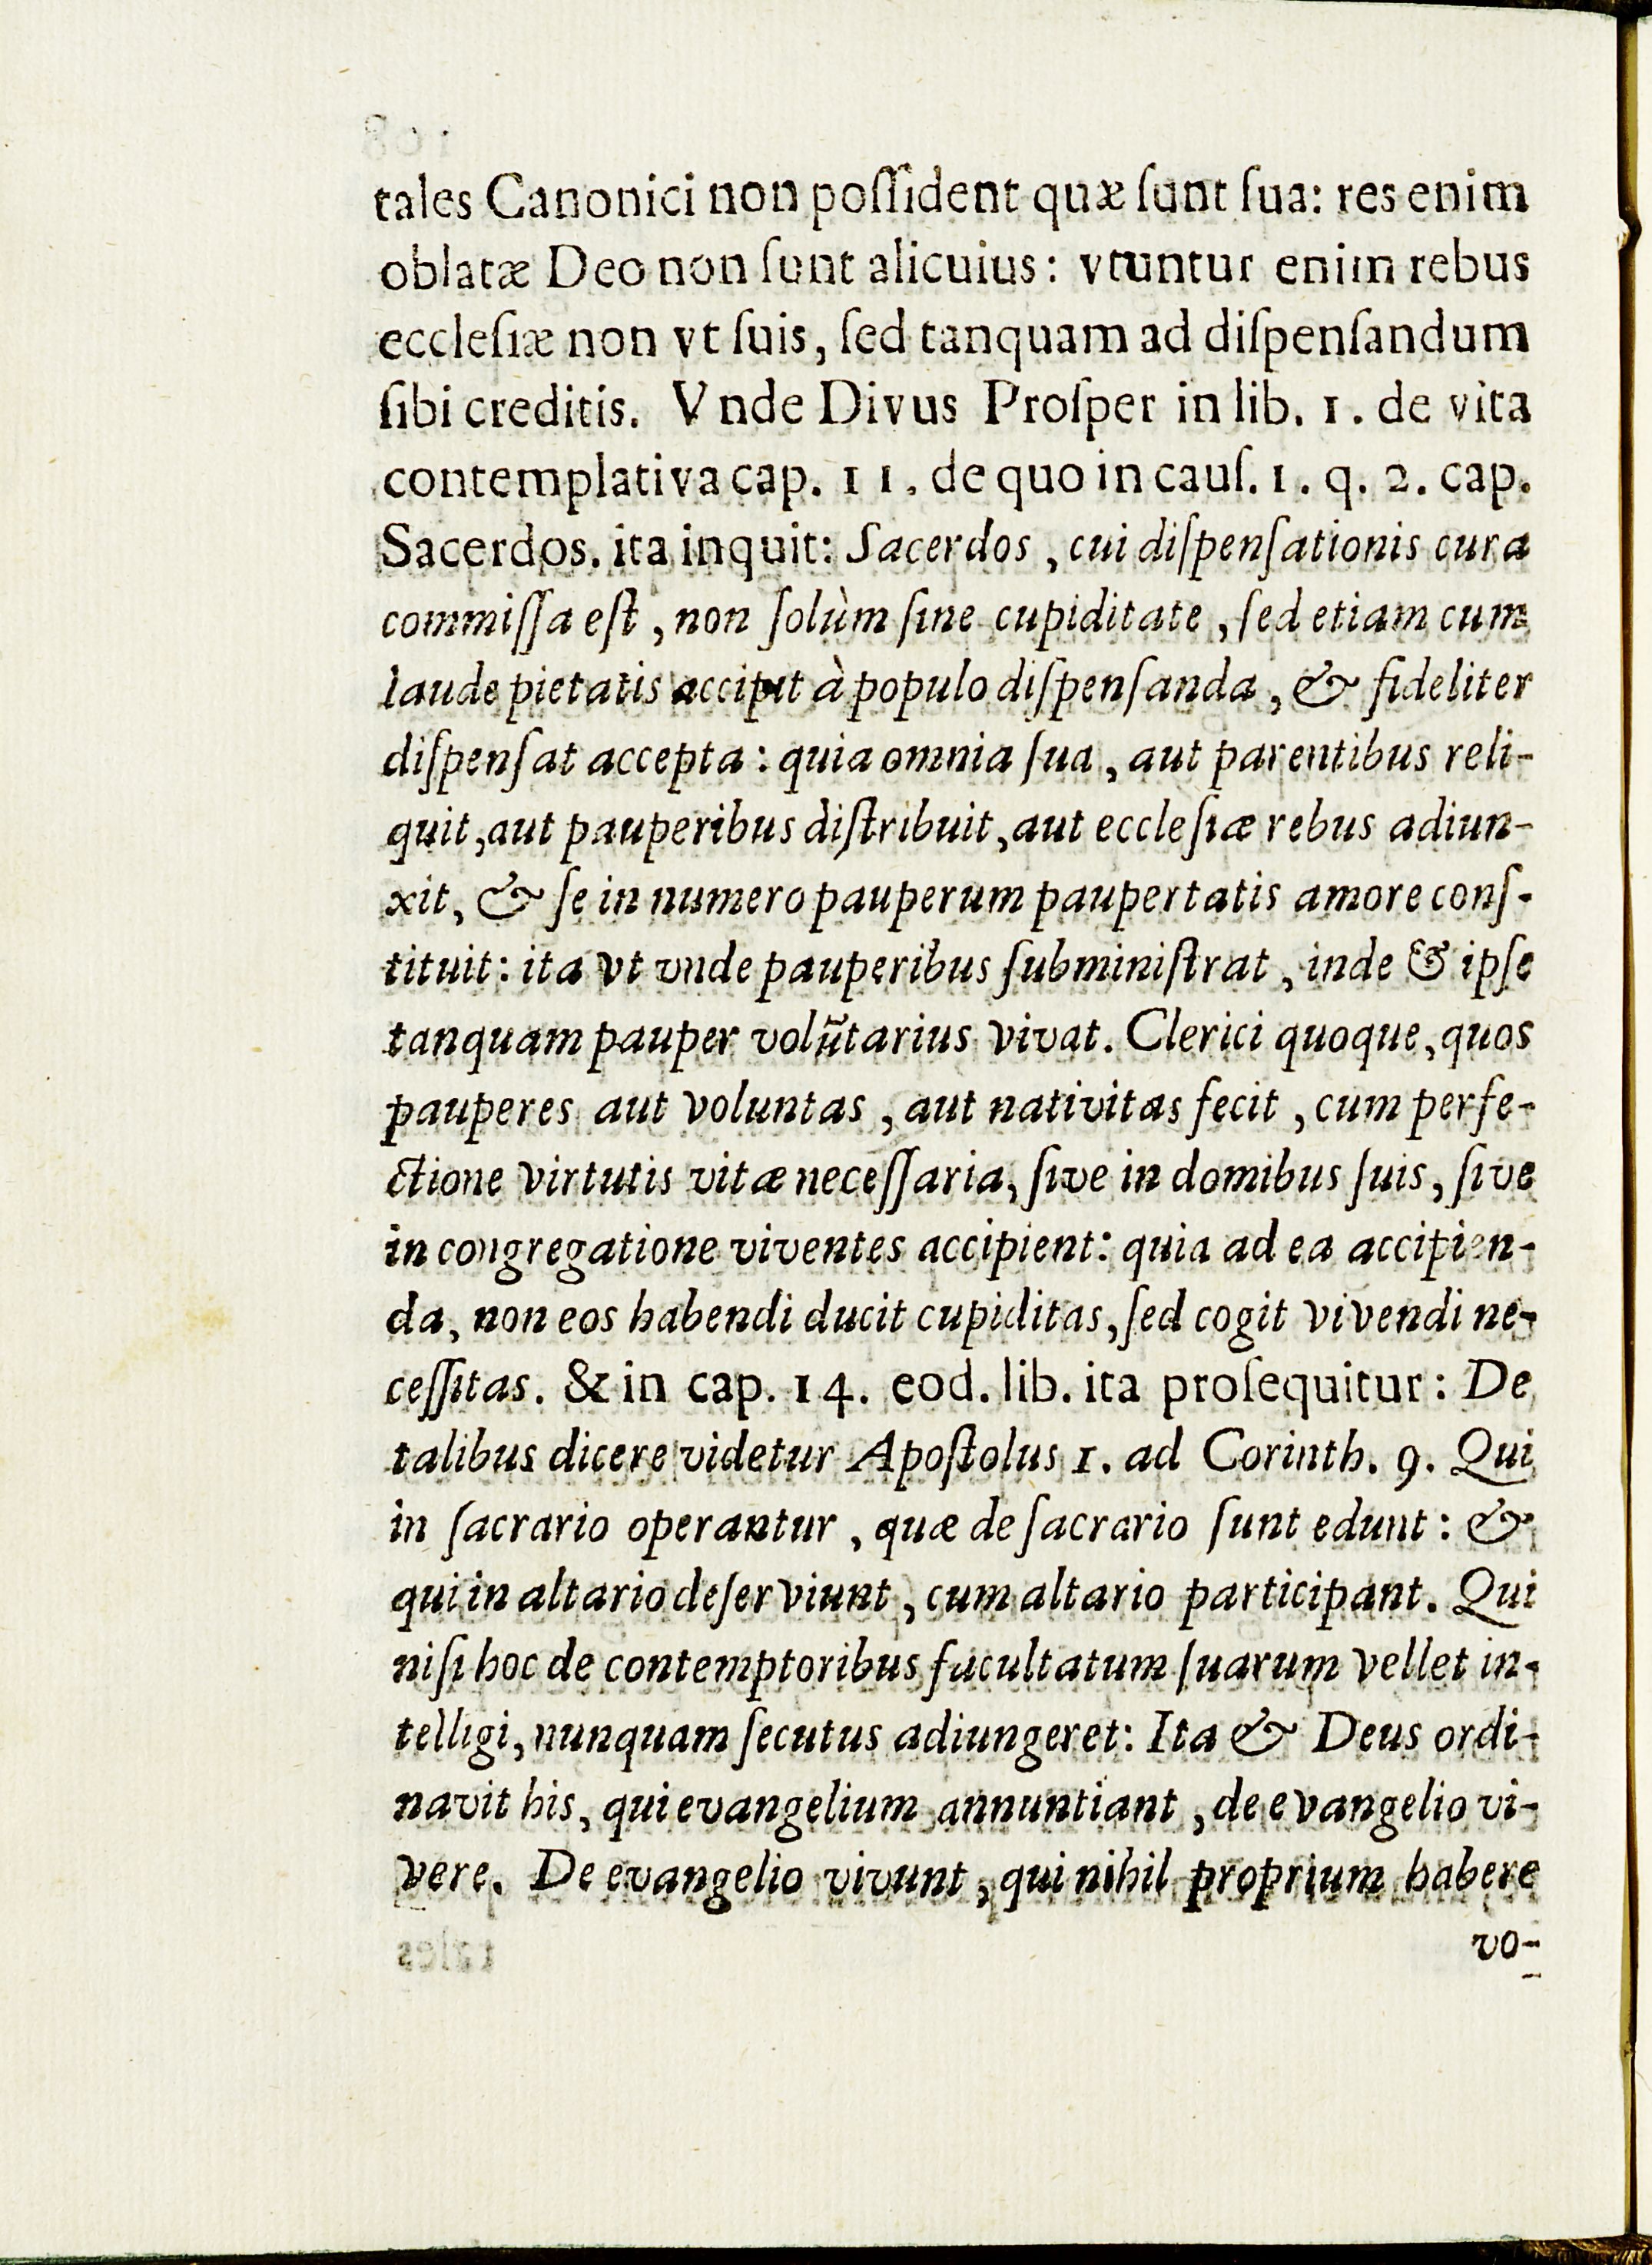 tales Canonici non poſſident quæ ſunt ſua: res enim
oblatæ Deo non ſunt alicuius: vtuntur enim rebus
eccleſiæ non vt ſuis, ſed tanquam ad diſpenſandum
ſibi creditis. Vnde Divus Proſper in lib. 1. de vita
contemplativa cap. 11. de quo in cauſ. 1. q. 2. cap.
Sacerdos. ita inquit: Sacerdos, cui diſpenſationis cura
commiſſa eſt, non ſolùm ſine cupiditate, ſed etiam cum
laude pietatis accipit à populo diſpenſanda, & fideliter
diſpenſat accepta: quia omnia ſua, aut parentibus reli-
quit, aut pauperibus diſtribuit, aut eccleſiæ rebus adiun-
xit, & ſe in numero pauperum paupertatis amore conſ-
tituit: ita vt vnde pauperibus ſubminiſtrat, inde & ipſe
tanquam pauper volũtarius vivat. Clerici quoque, quos
pauperes aut voluntas, aut nativitas fecit, cum perfe-
ctione virtutis vitæ neceſſaria, ſive in domibus ſuis, ſive
in congregatione viventes accipient: quia ad ea accipien-
da, non eos habendi ducit cupiditas, ſed cogit vivendi ne-
ceſſitas. & in cap. 14. eod. lib. ita proſequitur: De
talibus dicere videtur Apoſtolus 1. ad Corinth. 9. Qui
in ſacrario operantur, quæ de ſacrario ſunt edunt: &
qui in altario deſerviunt, cum altario participant. Qui
niſi hoc de contemptoribus facultatum ſuarum vellet in-
telligi, nunquam ſecutus adiungeret: Ita & Deus ordi-
navit his, qui evangelium annuntiant, de evangelio vi-
vere. De evangelio vivunt, qui nihil proprium habere
vo-